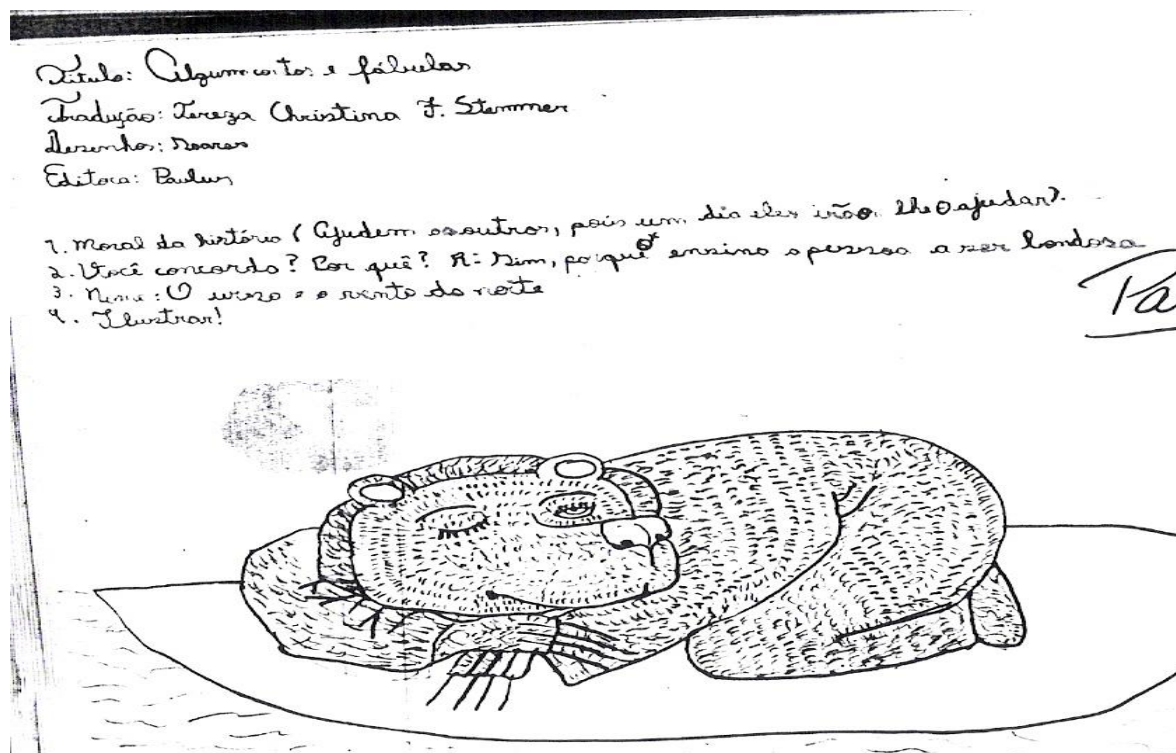 Título: Algum contos e fábulas
Tradução: Tereza Christina F. Stemmer
Desenhos: Soares
Editora: Paulus
1. Moral da história (Ajudem os outros, pois um dia eles irão lhe ajudar).
2. Você concorda? Por quê? R: Sim, porque ensina a pessoa a ser bondosa
3. Nome: O urso e o vento do norte
4. Ilustrar!
Pa